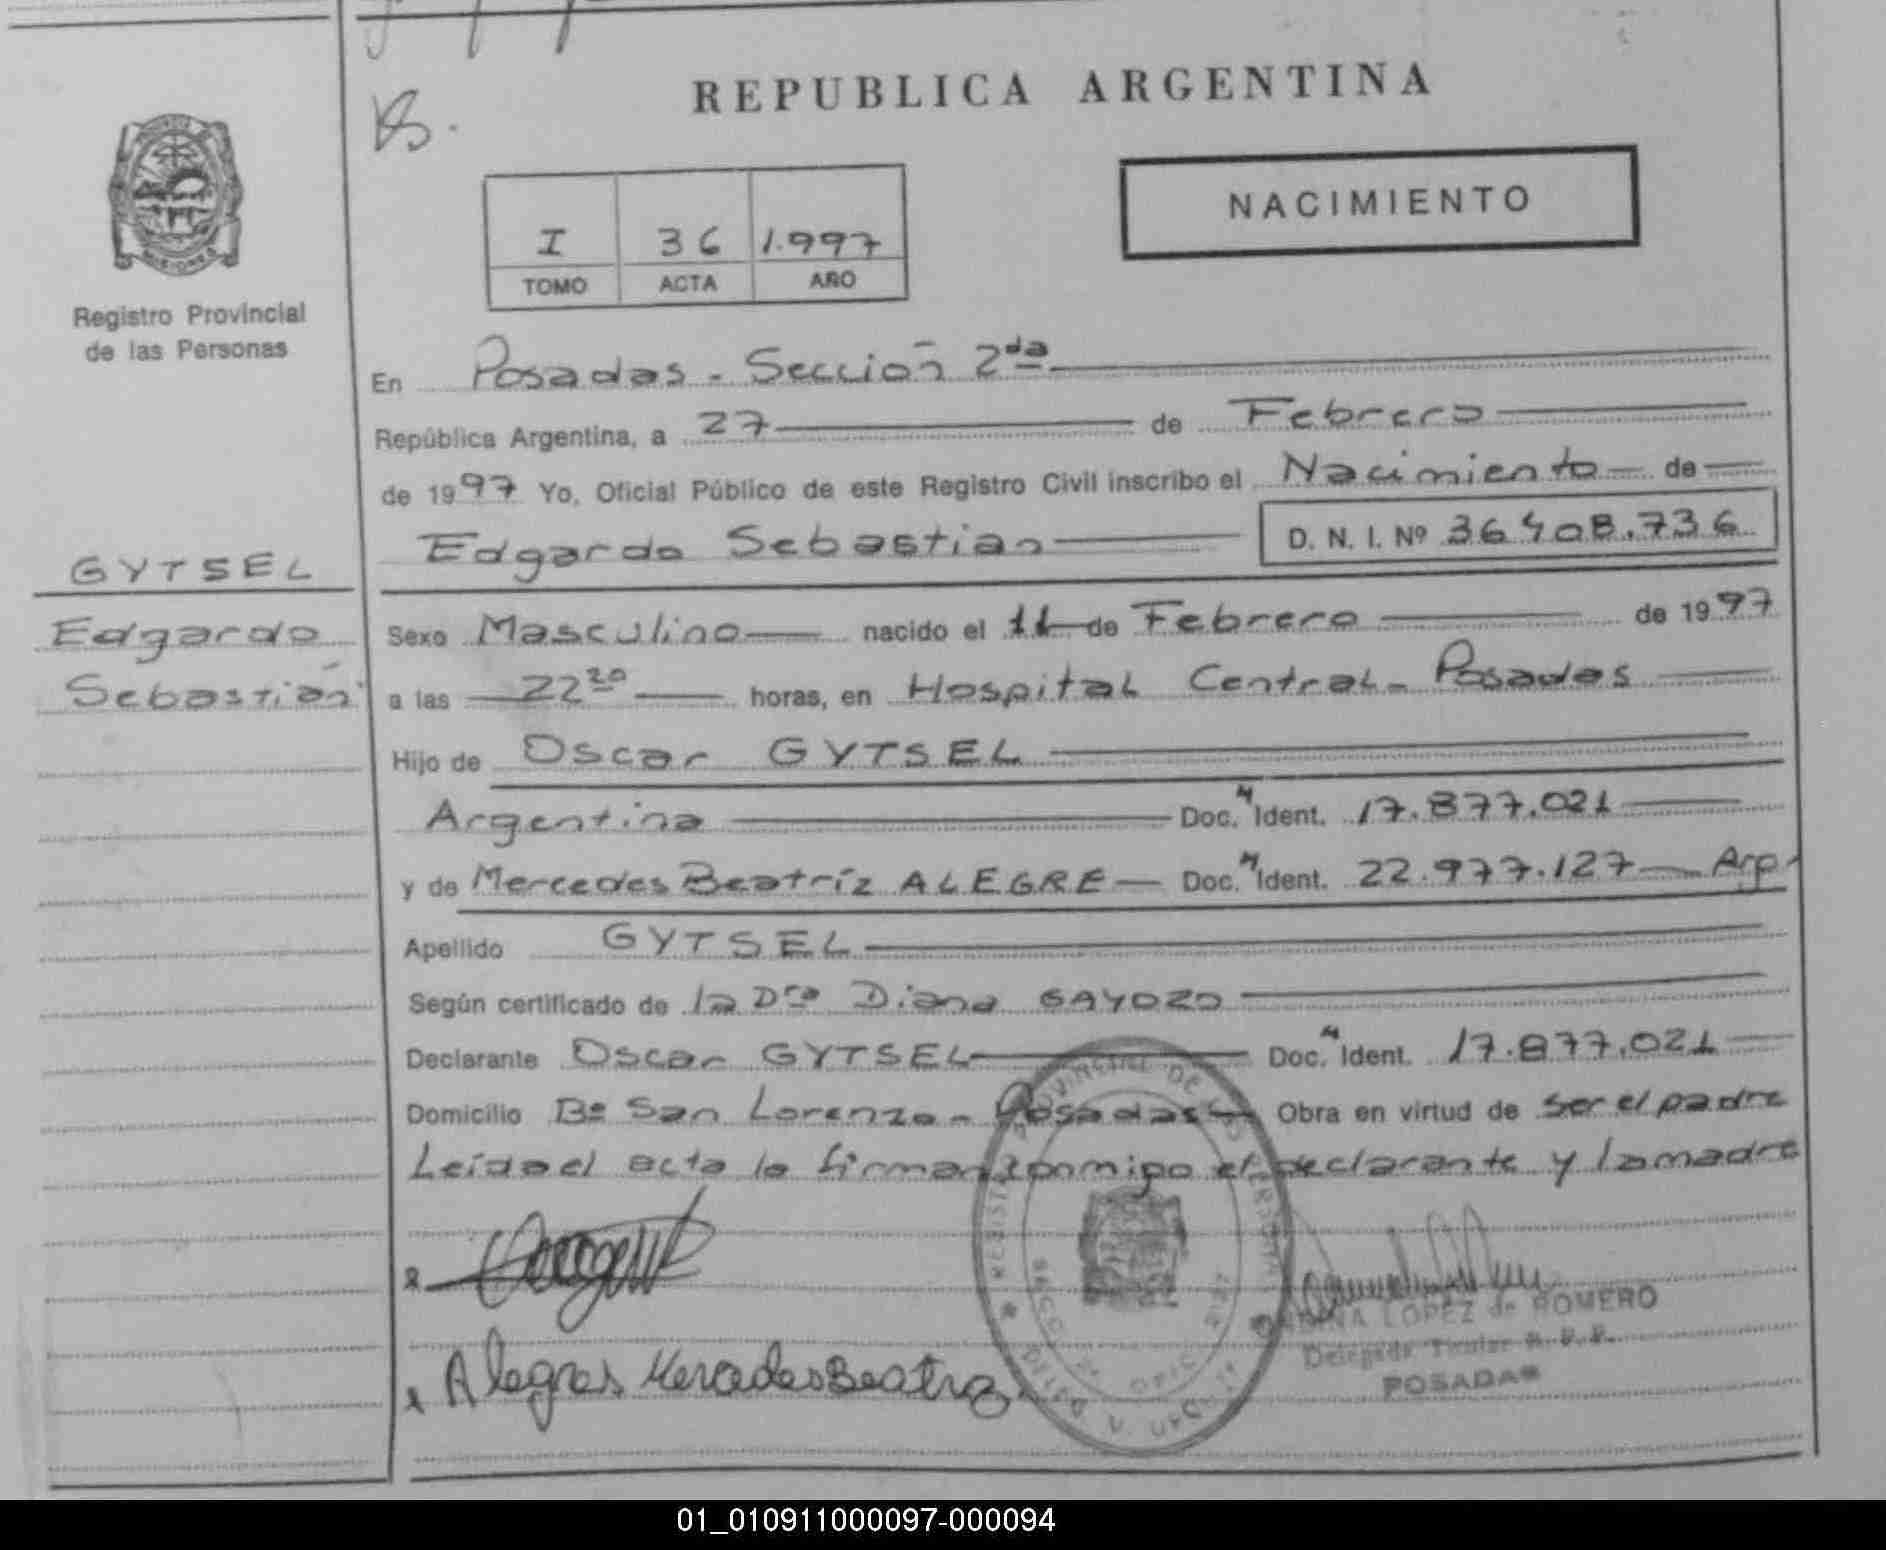 REPUBLICA ARGENTINA
NACIMIENTO
I 36 1.997
TOMO ACTA AÑO
MISIONES
Registro Provincial
de las Personas
GYTSEL
Edgardo
Sebastián
En Posadas - Sección 2da
República Argentina, a 27 de Febrero
de 1997 Yo, Oficial Público de este Registro Civil inscribo el Nacimiento de
Edgardo Sebastian D. N. I. Nº 36408.736
Sexo Masculino nacido el 11 de Febrero de 1997
a las 22 20 horas, en Hospital Central - Posadas
Hijo de Oscar GYTSEL
Argentina Doc. Ident. 17.877.021
y de Mercedes Beatríz ALEGRE Doc. Ident. 22.977.127 Arg.
Apellido GYTSEL
Según certificado de la Dra Diana GAYOZO
Declarante Oscar GYTSEL Doc. Ident. 17.877.021
Domicilio Bº San Lorenzo - Posadas Obra en virtud de ser el padre
Leída el acta la firman conmigo el declarante y la madre
Alegres Mercedes Beatriz
LOPEZ de ROMERO
Delegada Titular R. P. P.
POSADAS
01_010911000097-000094